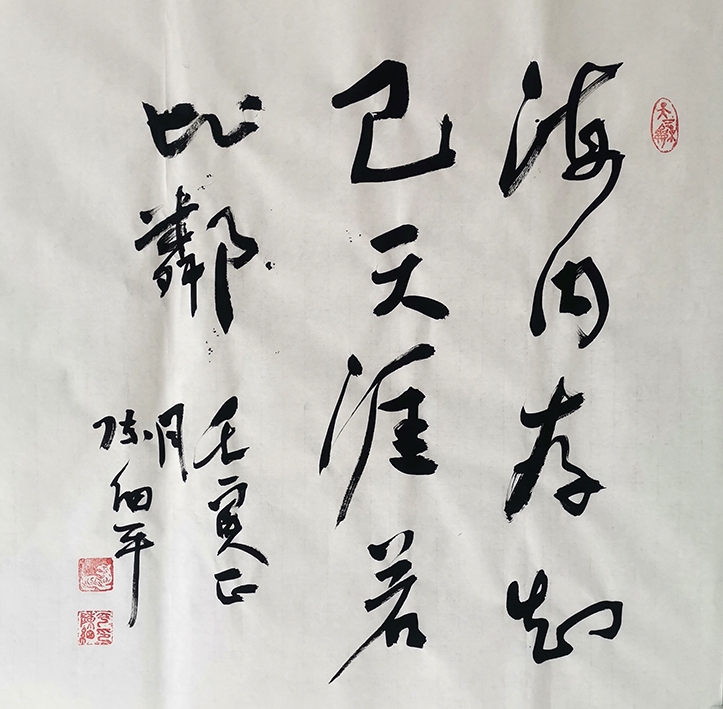 海内存知
己天涯若
比邻
壬寅正
月
陈细平